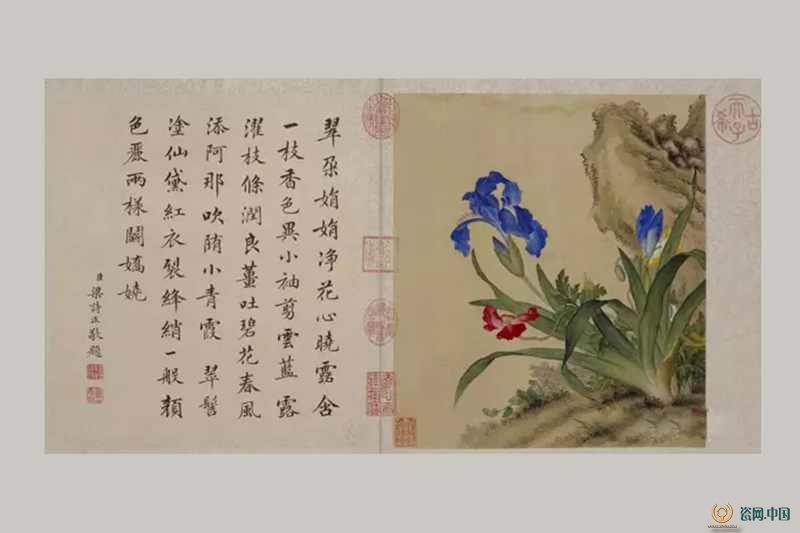 翠朶娟娟净花心曉露含
一枝香色異小袖剪雲藍露
濯枝條潤良薑吐碧花春風
添阿那吹墮小青霞 翠髻
塗仙黛紅衣裂絳綃一般顏
色麗兩樣鬭嬌嬈
臣梁詩正敬題
古希天子
瓷网.中国